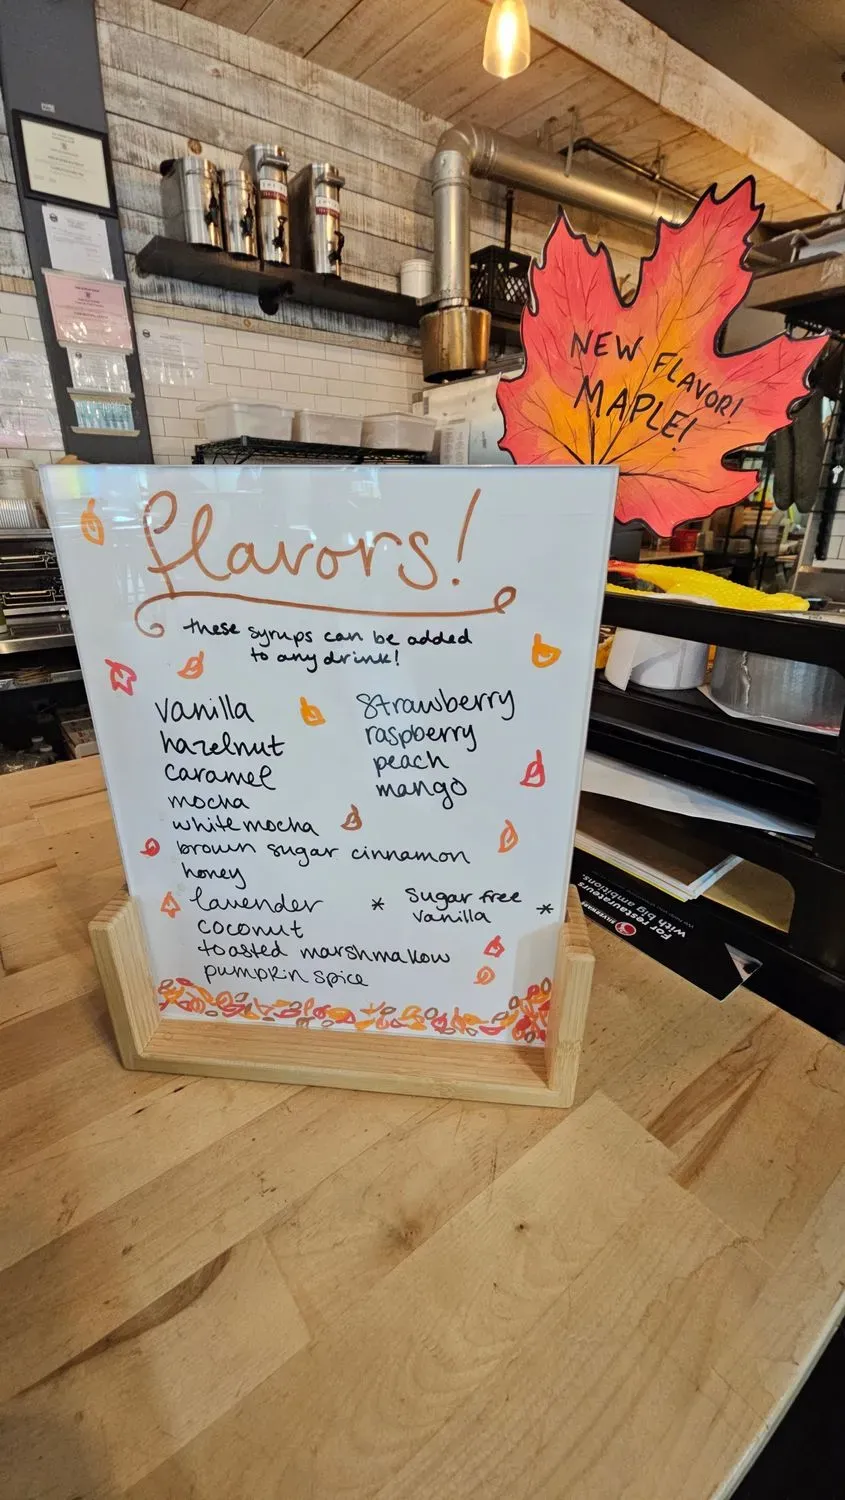 NEW FLAVOR!
MAPLE!
flavors!
these syrups can be added
to any drink!
vanilla
hazelnut
caramel
mocha
white mocha
brown sugar cinnamon
honey
lavender
coconut
toasted marshmallow
pumpkin spice
strawberry
raspberry
peach
mango
* Sugar free *
vanilla
For restaurateurs
with big ambitions.